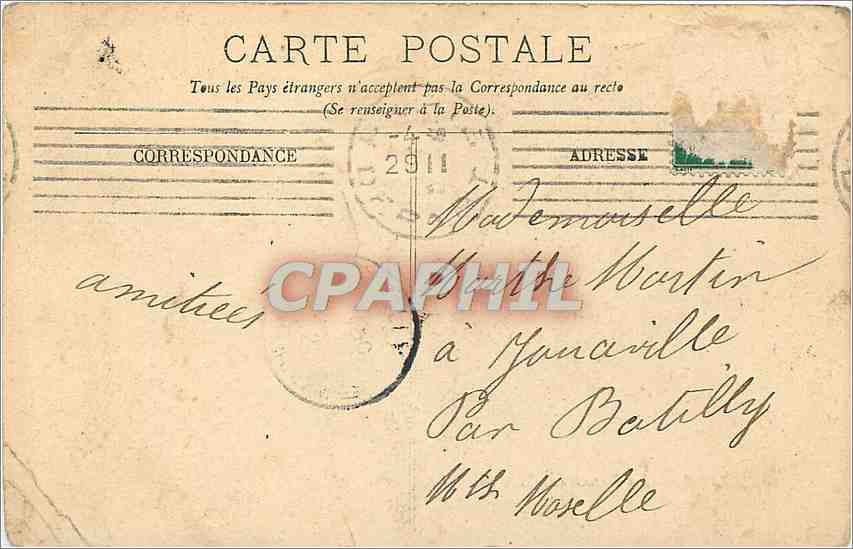 CARTE POSTALE
Tous les Pays étrangers n'acceptent pas la Correspondance au recto
(Se renseigner à la Poste).
CORRESPONDANCE
ADRESSE
29 11
Mademoiselle
Marthe Martin
à Jouaville
Par Batilly
Mthe Moselle
amitiées
CPAPHIL